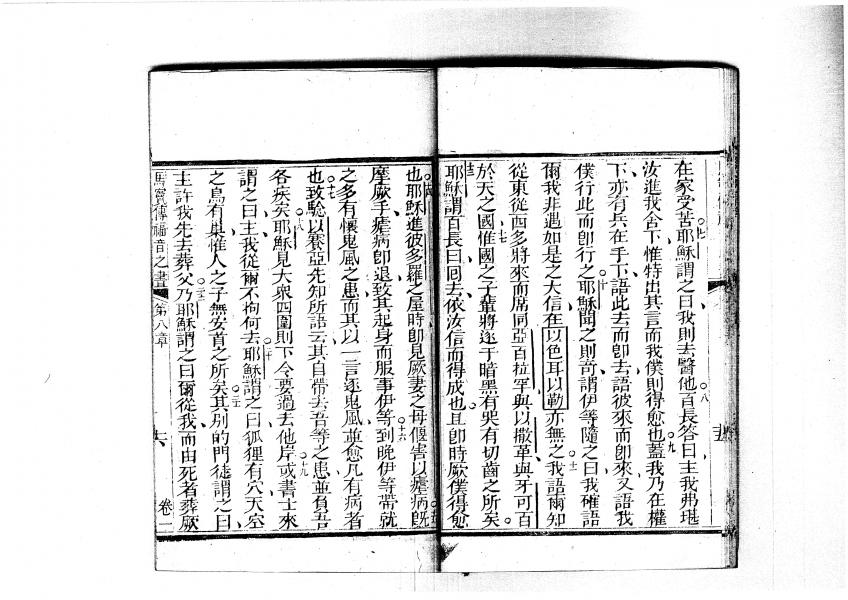 在家受苦耶穌謂之曰我則去醫他百長答曰主我弗堪
汝進我舍下惟特出其言而我僕則得愈也蓋我乃在權
下亦有兵在手下語此去而即去語彼來而即來又語我
僕行此而即行之耶穌聞之則奇謂伊等隨之曰我確語
爾我非遇如是之大信在以色耳以勒亦無之我語爾知
從東從西多將來而席同亞百拉罕與以撒革與牙可百
於天之國惟國之子輩將逐于暗黑有哭有切齒之所矣
耶穌謂百長曰回去依汝信而得成也且即時厥僕得愈
也耶穌進彼多羅之屋時即見厥妻之母偃害以瘧病既
摩厥手瘧病即退致其起身而服事伊等到晚伊等帶就
之多有懷鬼風之患而其以一言逐鬼風並愈凡有病者
也致騐以賽亞先知所語云其自帶去吾等之患並負吾
各疾矣耶穌見大眾四圍則下令要過去他岸或書士來
謂之曰主我從爾不拘何去耶穌謂之曰狐狸有穴天空
之鳥有巢惟人之子無安首之所矣其別的門徒謂之曰
主許我先去葬父乃耶穌謂之曰爾從我而由死者葬厥
馬竇傳福音之書 第八章 卷一